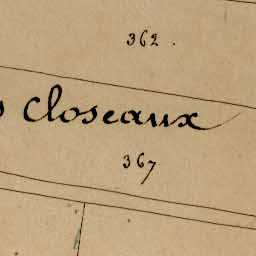 362.
s Closeaux
367